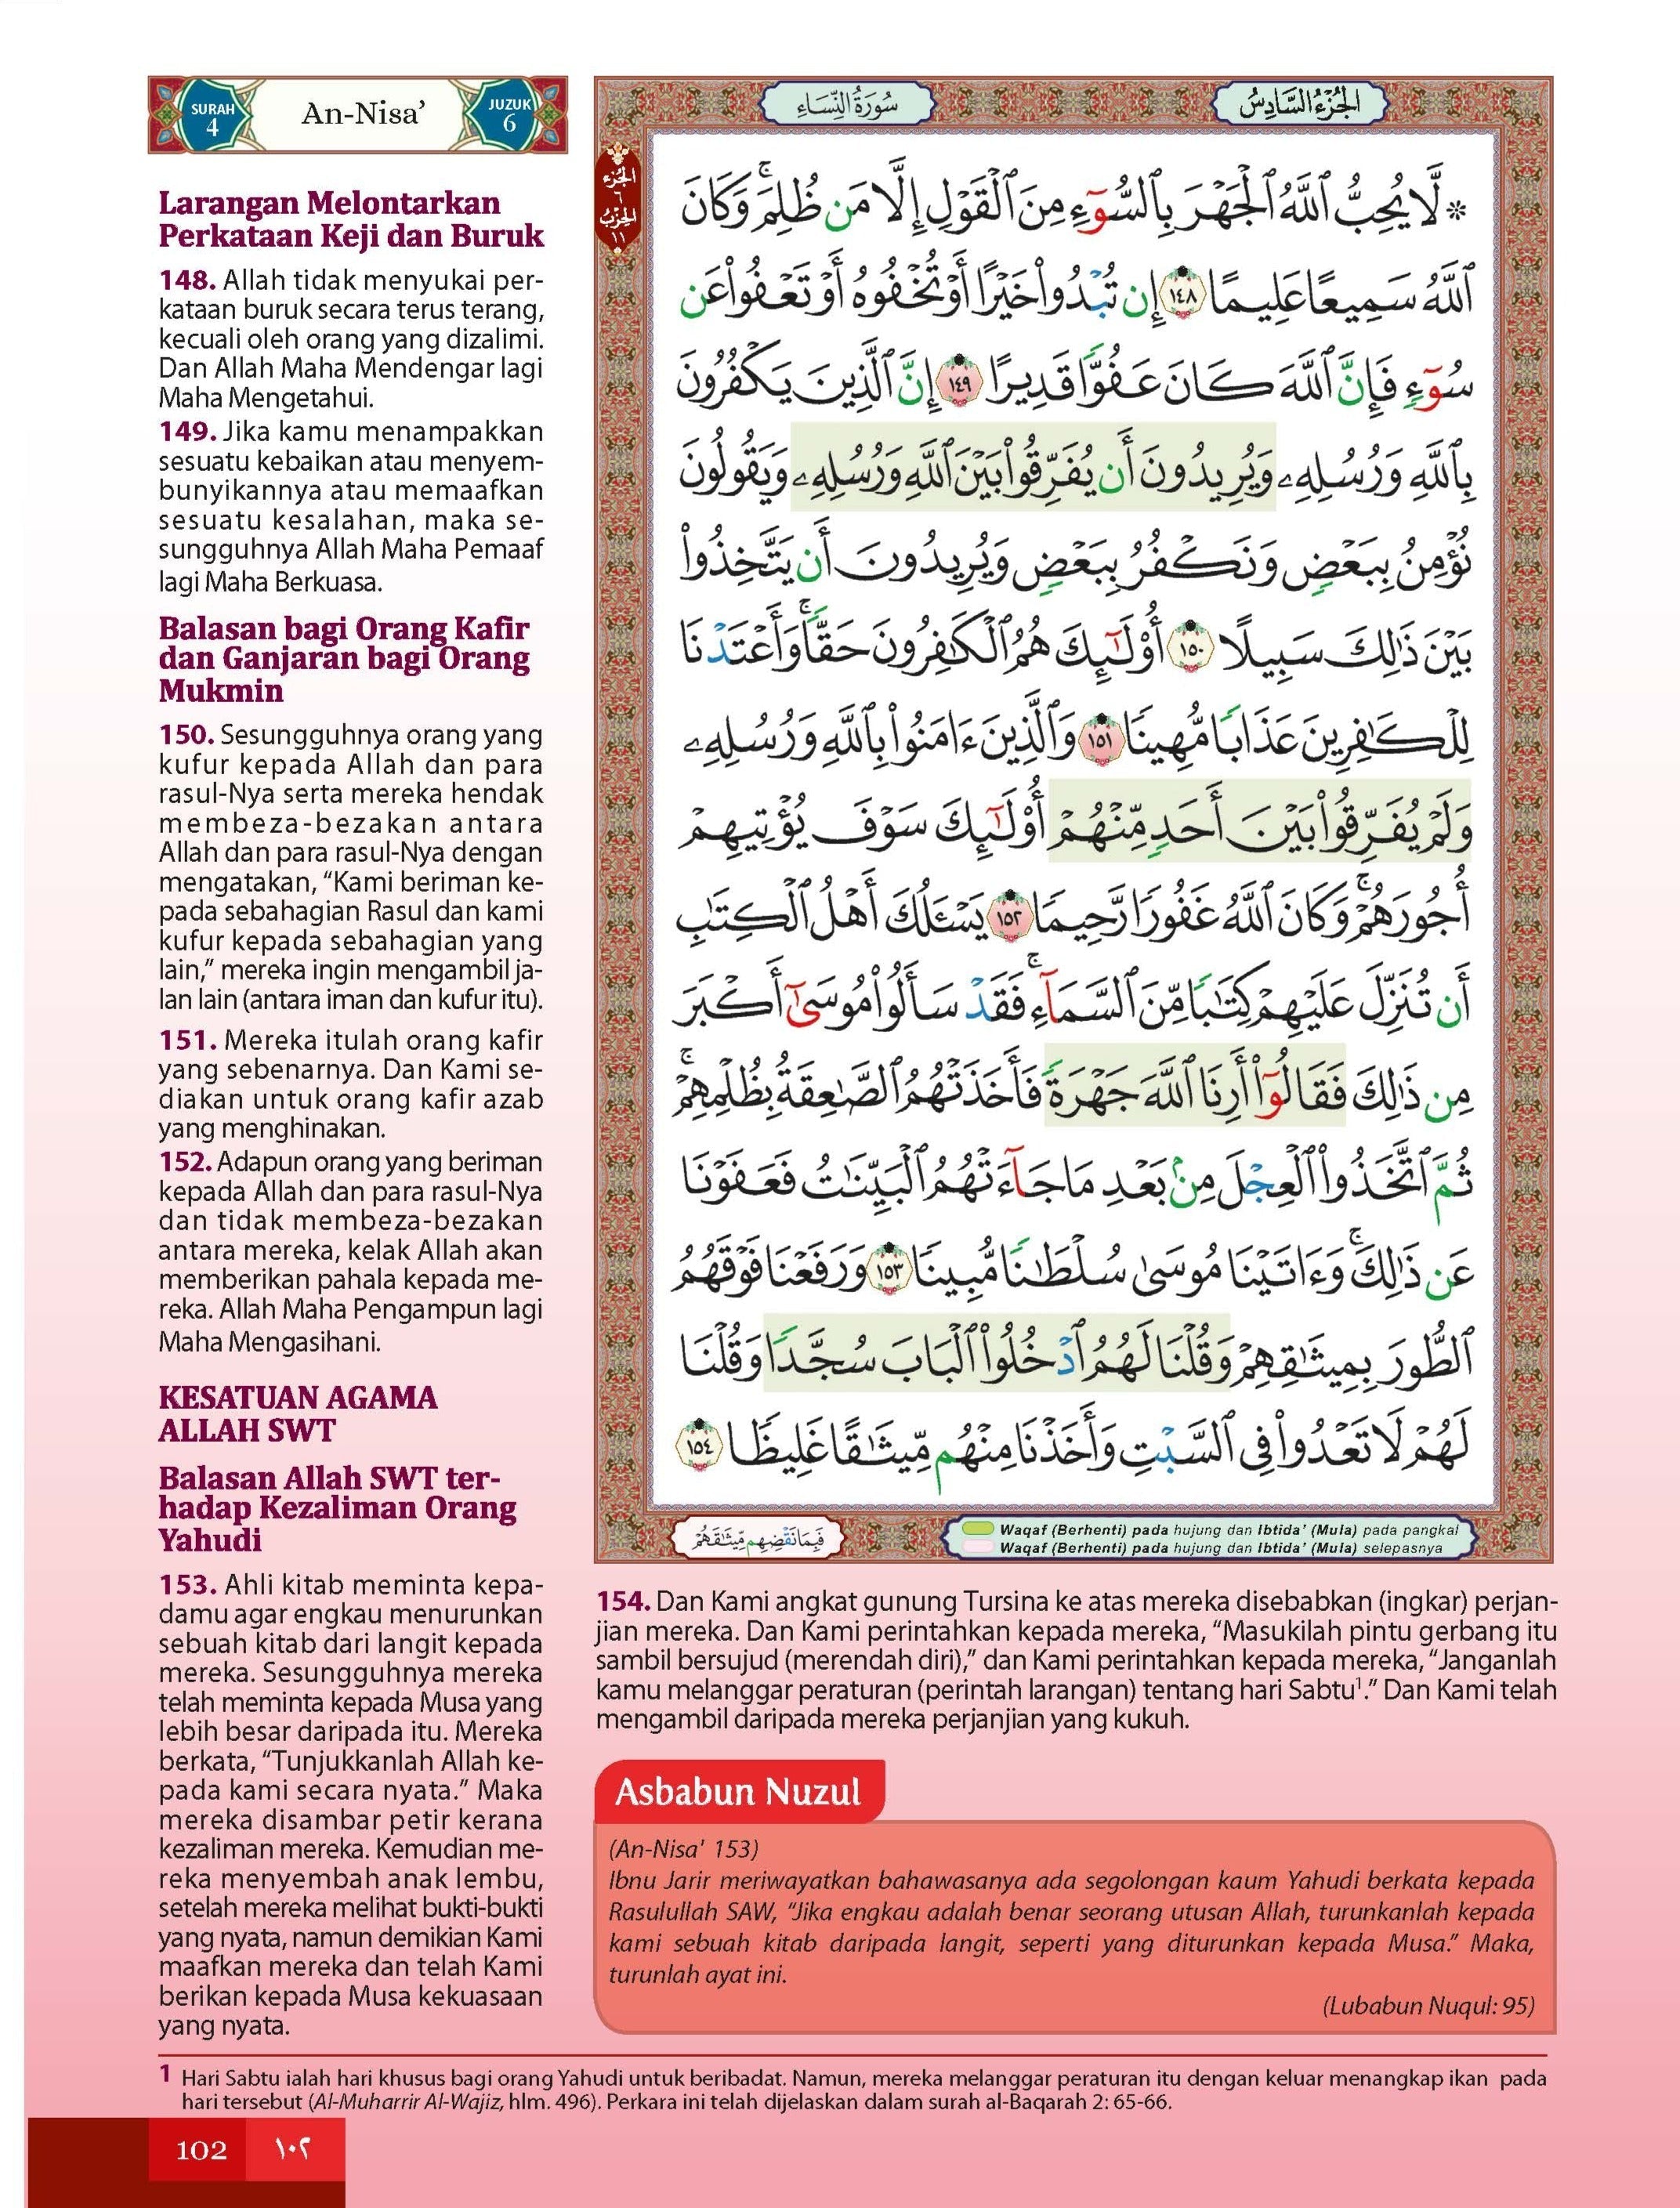 SURAH
4
An-Nisa’
JUZUK
6
Larangan Melontarkan
Perkataan Keji dan Buruk
148. Allah tidak menyukai per-
kataan buruk secara terus terang,
kecuali oleh orang yang dizalimi.
Dan Allah Maha Mendengar lagi
Maha Mengetahui.
149. Jika kamu menampakkan
sesuatu kebaikan atau menyem-
bunyikannya atau memaafkan
sesuatu kesalahan, maka se-
sungguhnya Allah Maha Pemaaf
lagi Maha Berkuasa.
Balasan bagi Orang Kafir
dan Ganjaran bagi Orang
Mukmin
150. Sesungguhnya orang yang
kufur kepada Allah dan para
rasul-Nya serta mereka hendak
membeza-bezakan antara
Allah dan para rasul-Nya dengan
mengatakan, “Kami beriman ke-
pada sebahagian Rasul dan kami
kufur kepada sebahagian yang
lain,” mereka ingin mengambil ja-
lan lain (antara iman dan kufur itu).
151. Mereka itulah orang kafir
yang sebenarnya. Dan Kami se-
diakan untuk orang kafir azab
yang menghinakan.
152. Adapun orang yang beriman
kepada Allah dan para rasul-Nya
dan tidak membeza-bezakan
antara mereka, kelak Allah akan
memberikan pahala kepada me-
reka. Allah Maha Pengampun lagi
Maha Mengasihani.
KESATUAN AGAMA
ALLAH SWT
Balasan Allah SWT ter-
hadap Kezaliman Orang
Yahudi
153. Ahli kitab meminta kepa-
damu agar engkau menurunkan
sebuah kitab dari langit kepada
mereka. Sesungguhnya mereka
telah meminta kepada Musa yang
lebih besar daripada itu. Mereka
berkata, “Tunjukkanlah Allah ke-
pada kami secara nyata.” Maka
mereka disambar petir kerana
kezaliman mereka. Kemudian me-
reka menyembah anak lembu,
setelah mereka melihat bukti-bukti
yang nyata, namun demikian Kami
maafkan mereka dan telah Kami
berikan kepada Musa kekuasaan
yang nyata.
الجُزْءُ السَّادِسُ
سُورَةُ النِّسَاءِ
الجزء
٦
الحزب
١١
* لَّا يُحِبُّ ٱللَّهُ ٱلْجَهْرَ بِٱلسُّوٓءِ مِنَ ٱلْقَوْلِ إِلَّا مَن ظُلِمَ ۚ وَكَانَ
ٱللَّهُ سَمِيعًا عَلِيمًا ١٤٨ إِن تُبْدُوا۟ خَيْرًا أَوْ تُخْفُوهُ أَوْ تَعْفُوا۟ عَن
سُوٓءٍ فَإِنَّ ٱللَّهَ كَانَ عَفُوًّا قَدِيرًا ١٤٩ إِنَّ ٱلَّذِينَ يَكْفُرُونَ
بِٱللَّهِ وَرُسُلِهِۦ وَيُرِيدُونَ أَن يُفَرِّقُوا۟ بَيْنَ ٱللَّهِ وَرُسُلِهِۦ وَيَقُولُونَ
نُؤْمِنُ بِبَعْضٍ وَنَكْفُرُ بِبَعْضٍ وَيُرِيدُونَ أَن يَتَّخِذُوا۟
بَيْنَ ذَٰلِكَ سَبِيلًا ١٥٠ أُو۟لَٰٓئِكَ هُمُ ٱلْكَٰفِرُونَ حَقًّا ۚ وَأَعْتَدْنَا
لِلْكَٰفِرِينَ عَذَابًا مُّهِينًا ١٥١ وَٱلَّذِينَ ءَامَنُوا۟ بِٱللَّهِ وَرُسُلِهِۦ
وَلَمْ يُفَرِّقُوا۟ بَيْنَ أَحَدٍ مِّنْهُمْ أُو۟لَٰٓئِكَ سَوْفَ يُؤْتِيهِمْ
أُجُورَهُمْ ۗ وَكَانَ ٱللَّهُ غَفُورًا رَّحِيمًا ١٥٢ يَسْـَٔلُكَ أَهْلُ ٱلْكِتَٰبِ
أَن تُنَزِّلَ عَلَيْهِمْ كِتَٰبًا مِّنَ ٱلسَّمَآءِ ۚ فَقَدْ سَأَلُوا۟ مُوسَىٰٓ أَكْبَرَ
مِن ذَٰلِكَ فَقَالُوٓا۟ أَرِنَا ٱللَّهَ جَهْرَةً فَأَخَذَتْهُمُ ٱلصَّٰعِقَةُ بِظُلْمِهِمْ ۚ
ثُمَّ ٱتَّخَذُوا۟ ٱلْعِجْلَ مِنۢ بَعْدِ مَا جَآءَتْهُمُ ٱلْبَيِّنَٰتُ فَعَفَوْنَا
عَن ذَٰلِكَ ۚ وَءَاتَيْنَا مُوسَىٰ سُلْطَٰنًا مُّبِينًا ١٥٣ وَرَفَعْنَا فَوْقَهُمُ
ٱلطُّورَ بِمِيثَٰقِهِمْ وَقُلْنَا لَهُمُ ٱدْخُلُوا۟ ٱلْبَابَ سُجَّدًا وَقُلْنَا
لَهُمْ لَا تَعْدُوا۟ فِى ٱلسَّبْتِ وَأَخَذْنَا مِنْهُم مِّيثَٰقًا غَلِيظًا ١٥٤
فَبِمَا نَقْضِهِم مِّيثَٰقَهُمْ
Waqaf (Berhenti) pada hujung dan Ibtida’ (Mula) pada pangkal
Waqaf (Berhenti) pada hujung dan Ibtida’ (Mula) selepasnya
154. Dan Kami angkat gunung Tursina ke atas mereka disebabkan (ingkar) perjan-
jian mereka. Dan Kami perintahkan kepada mereka, “Masukilah pintu gerbang itu
sambil bersujud (merendah diri),” dan Kami perintahkan kepada mereka, “Janganlah
kamu melanggar peraturan (perintah larangan) tentang hari Sabtu¹.” Dan Kami telah
mengambil daripada mereka perjanjian yang kukuh.
Asbabun Nuzul
(An-Nisa' 153)
Ibnu Jarir meriwayatkan bahawasanya ada segolongan kaum Yahudi berkata kepada
Rasulullah SAW, “Jika engkau adalah benar seorang utusan Allah, turunkanlah kepada
kami sebuah kitab daripada langit, seperti yang diturunkan kepada Musa.” Maka,
turunlah ayat ini.
(Lubabun Nuqul: 95)
1 Hari Sabtu ialah hari khusus bagi orang Yahudi untuk beribadat. Namun, mereka melanggar peraturan itu dengan keluar menangkap ikan pada
hari tersebut (Al-Muharrir Al-Wajiz, hlm. 496). Perkara ini telah dijelaskan dalam surah al-Baqarah 2: 65-66.
102 ١٠٢